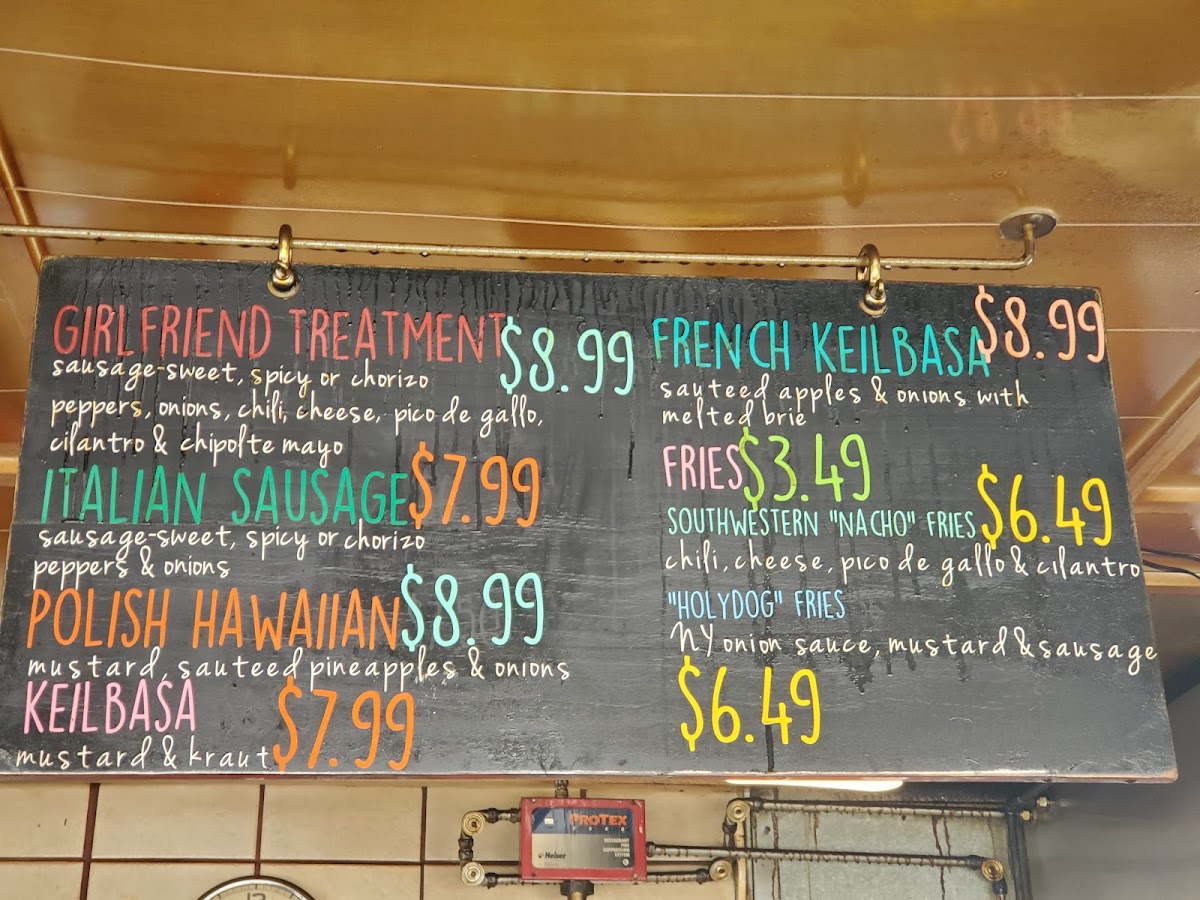 GIRLFRIEND TREATMENT $8.99
sausage-sweet, spicy or chorizo
peppers, onions, chili, cheese, pico de gallo,
cilantro & chipolte mayo
ITALIAN SAUSAGE $7.99
sausage-sweet, spicy or chorizo
peppers & onions
POLISH HAWAIIAN $8.99
mustard, sauteed pineapples & onions
KEILBASA $7.99
mustard & kraut
FRENCH KEILBASA $8.99
sauteed apples & onions with
melted brie
FRIES $3.49
SOUTHWESTERN "NACHO" FRIES $6.49
chili, cheese, pico de gallo & cilantro
"HOLYDOG" FRIES
NY onion sauce, mustard & sausage
$6.49
PROTEX
Heiser
12